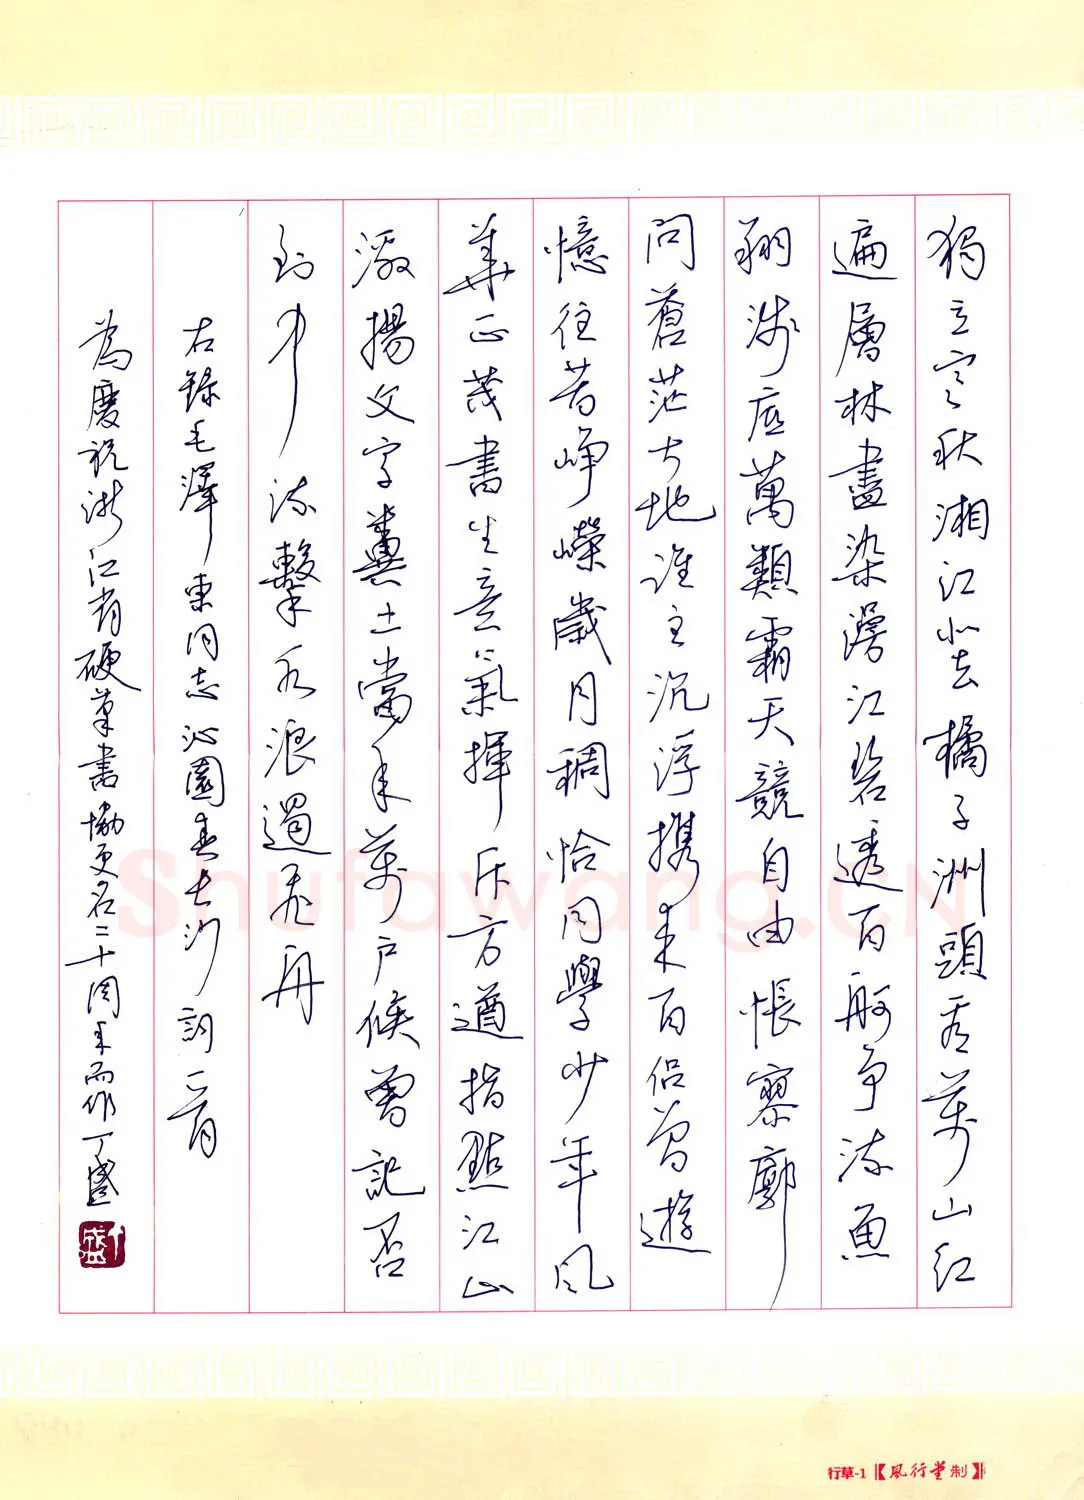 獨立寒秋湘江北去橘子洲頭看萬山紅
遍層林盡染漫江碧透百舸争流魚
翔淺底萬類霜天競自由悵寥廓
問蒼茫大地誰主沉浮携來百侣曾遊
憶往昔峥嶸歲月稠恰同學少年風
華正茂書生意氣揮斥方遒指點江山
激揚文字糞土當年萬户候曾記否
到中流擊水浪遏飛舟
右録毛澤東同志沁園春長沙詞一首
為慶祝浙江省硬筆書協更名二十周年而作丁盛
丁盛
Shufawang.CN
行草-1【風行堂制】